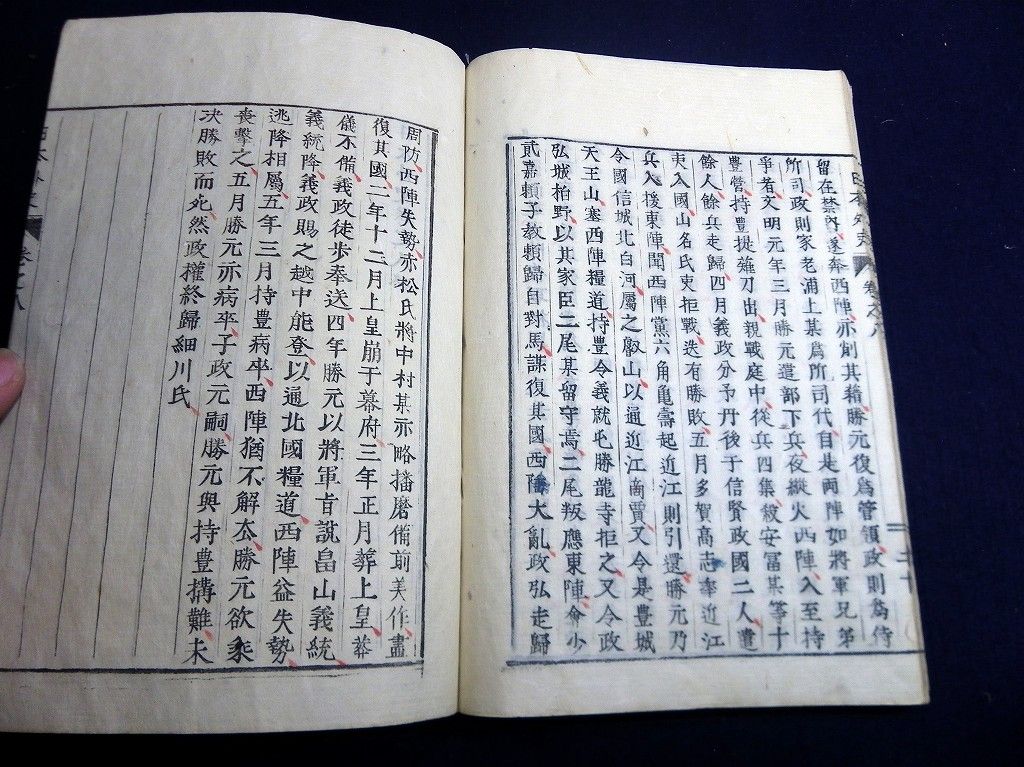 日本外史 卷之八 二十
留在禁內遂奔西陣亦削其籍勝元復爲管領政則爲侍
所司政則家老浦上某爲所司代自是兩陣如將軍兄弟
爭者文明元年三月勝元遣部下兵夜縱火西陣入至持
豐營持豐提薙刀出親戰庭中從兵四集殺安富某等十
餘人餘兵走歸四月義政分予丹後于信賢政國二人遣
吏入國山名氏吏拒戰迭有勝敗五月多賀高志率近江
兵入援東陣聞西陣黨六角龜壽起近江則引還勝元乃
令國信城北白河屬之叡山以通近江商賈又令是豐城
天王山塞西陣糧道持豐令義就屯勝龍寺拒之又令政
弘城柏野以其家臣二尾某留守焉二尾叛應東陣會少
貳嘉賴子教賴歸自對馬謀復其國西陲大亂政弘走歸
周防西陣失勢赤松氏將中村某亦略播磨備前美作盡
復其國二年十二月上皇崩于幕府三年正月葬上皇葬
儀不備義政徒步奉送四年勝元以將軍旨說畠山義統
義統降義政賜之越中能登以通北國糧道西陣益失勢
逃降相屬五年三月持豐病卒西陣猶不解去勝元欲乘
喪擊之五月勝元亦病卒子政元嗣勝元與持豐搆難未
決勝敗而死然政權終歸細川氏
卷之八